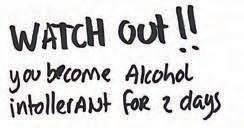 WATCH OUT!!
you become Alcohol
intollerANt foR 2 days